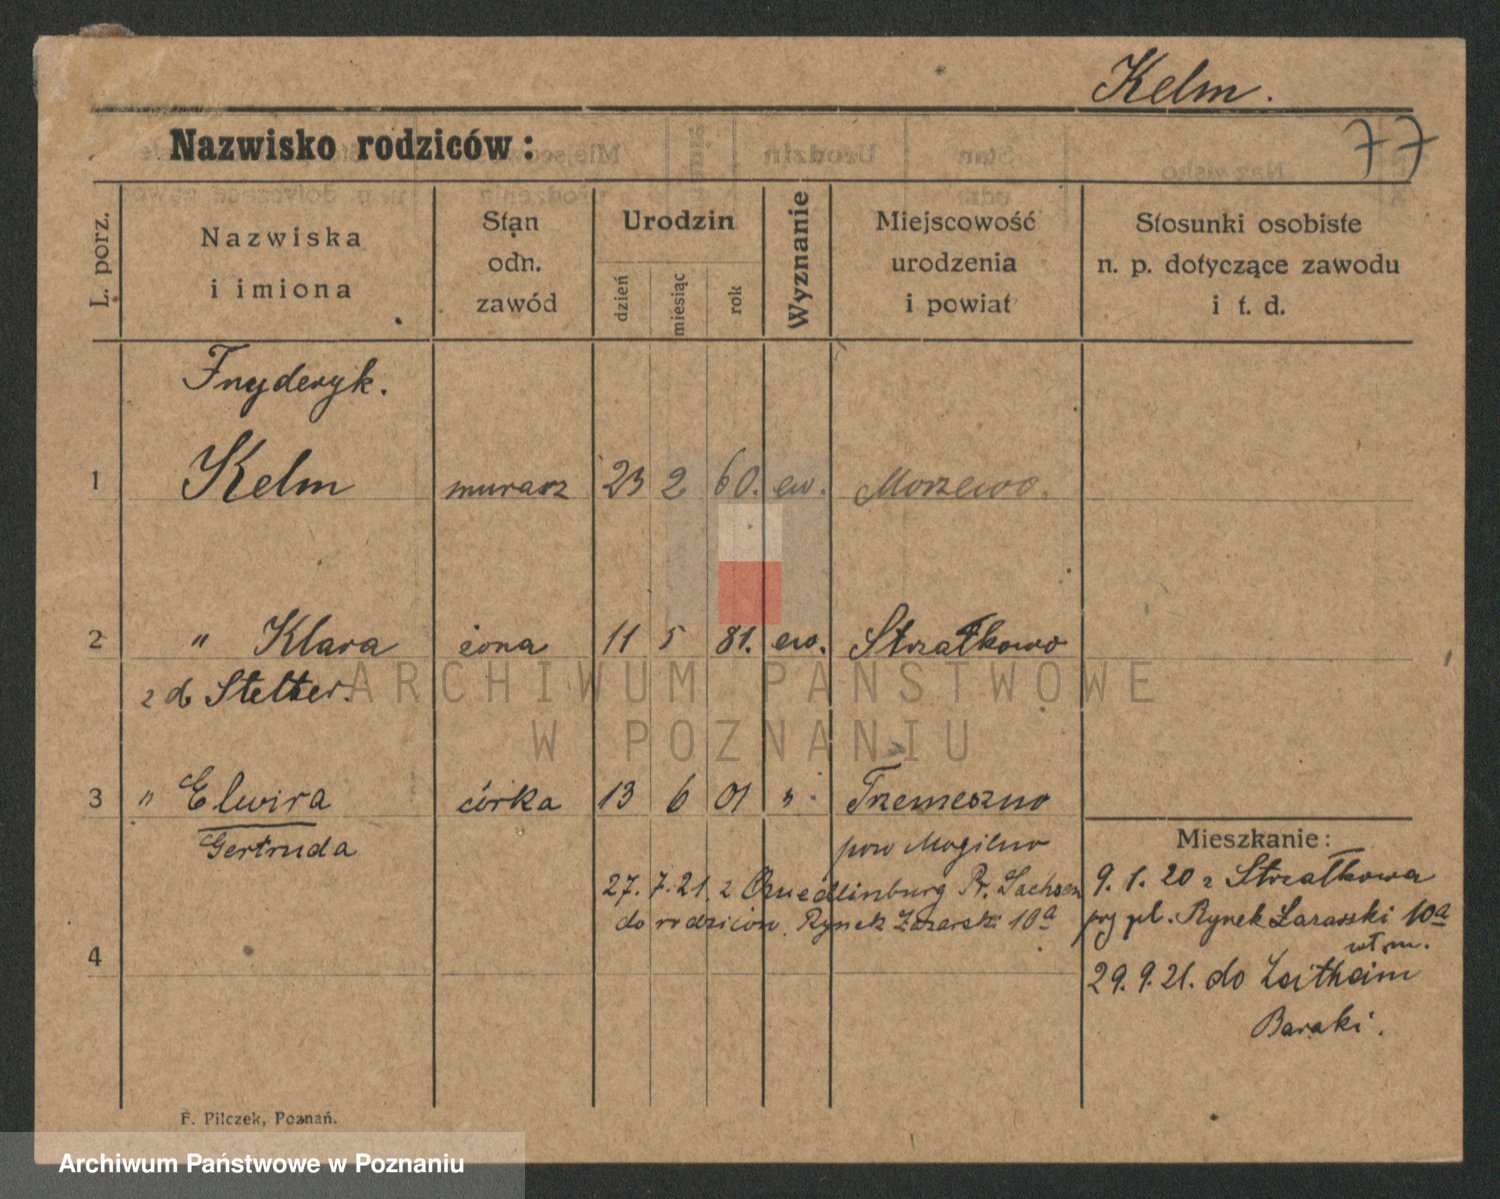 Kelm.
Nazwisko rodziców:
77
L. porz.
Nazwiska
i imiona
Stan
odn.
zawód
Urodzin
dzień
miesiąc
rok
Wyznanie
Miejscowość
urodzenia
i powiat
Stosunki osobiste
n. p. dotyczące zawodu
i t. d.
Fryderyk.
1 Kelm murarz 23 2 60. ew. Morzewo.
2 " Klara żona 11 5 81. ew. Strzałkowo
z d. Stelter.
ARCHIWUM PAŃSTWOWE
W POZNANIU
3 " Elwira córka 13 6 01 " Trzemeszno
Gertruda
pow Mogilno
27. 7. 21. z Quedlinburg Pr. Sachsen
do rodziców. Rynek Łazarski 10a
Mieszkanie:
9. 1. 20 z Strzałkowa
przy pl. Rynek Łazarski 10a
wł. m.
29. 9. 21. do Zeithain
Baraki.
4
F. Pilczek, Poznań.
Archiwum Państwowe w Poznaniu